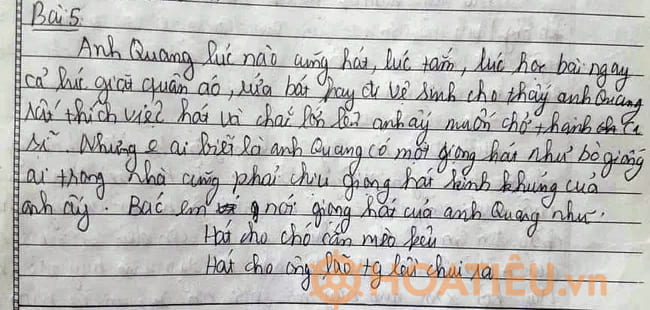 Bài 5
Anh Quang lúc nào cũng hát, lúc tắm, lúc học bài ngay
cả lúc giặt quần áo, rửa bát hay đi vệ sinh cho thấy anh Quang
rất thích việc hát và chắc lớn lên anh ấy muốn trở thành ca
sĩ. Nhưng e ai biết là anh Quang có một giọng hát như bò giống
ai trong nhà cũng phải chịu giọng hát kinh khủng của
anh ấy. Bác em nói giọng hát của anh Quang như:
Hát cho chó cắn mèo kêu
Hát cho ông lão tg lều chui ra
HOATIEU.vn